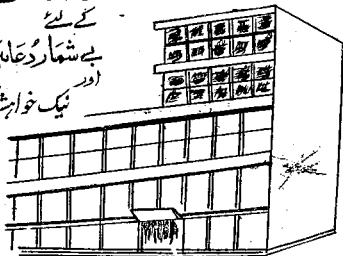 کے لئے
بے شمار دُعائیں
اور
نیک خواہش